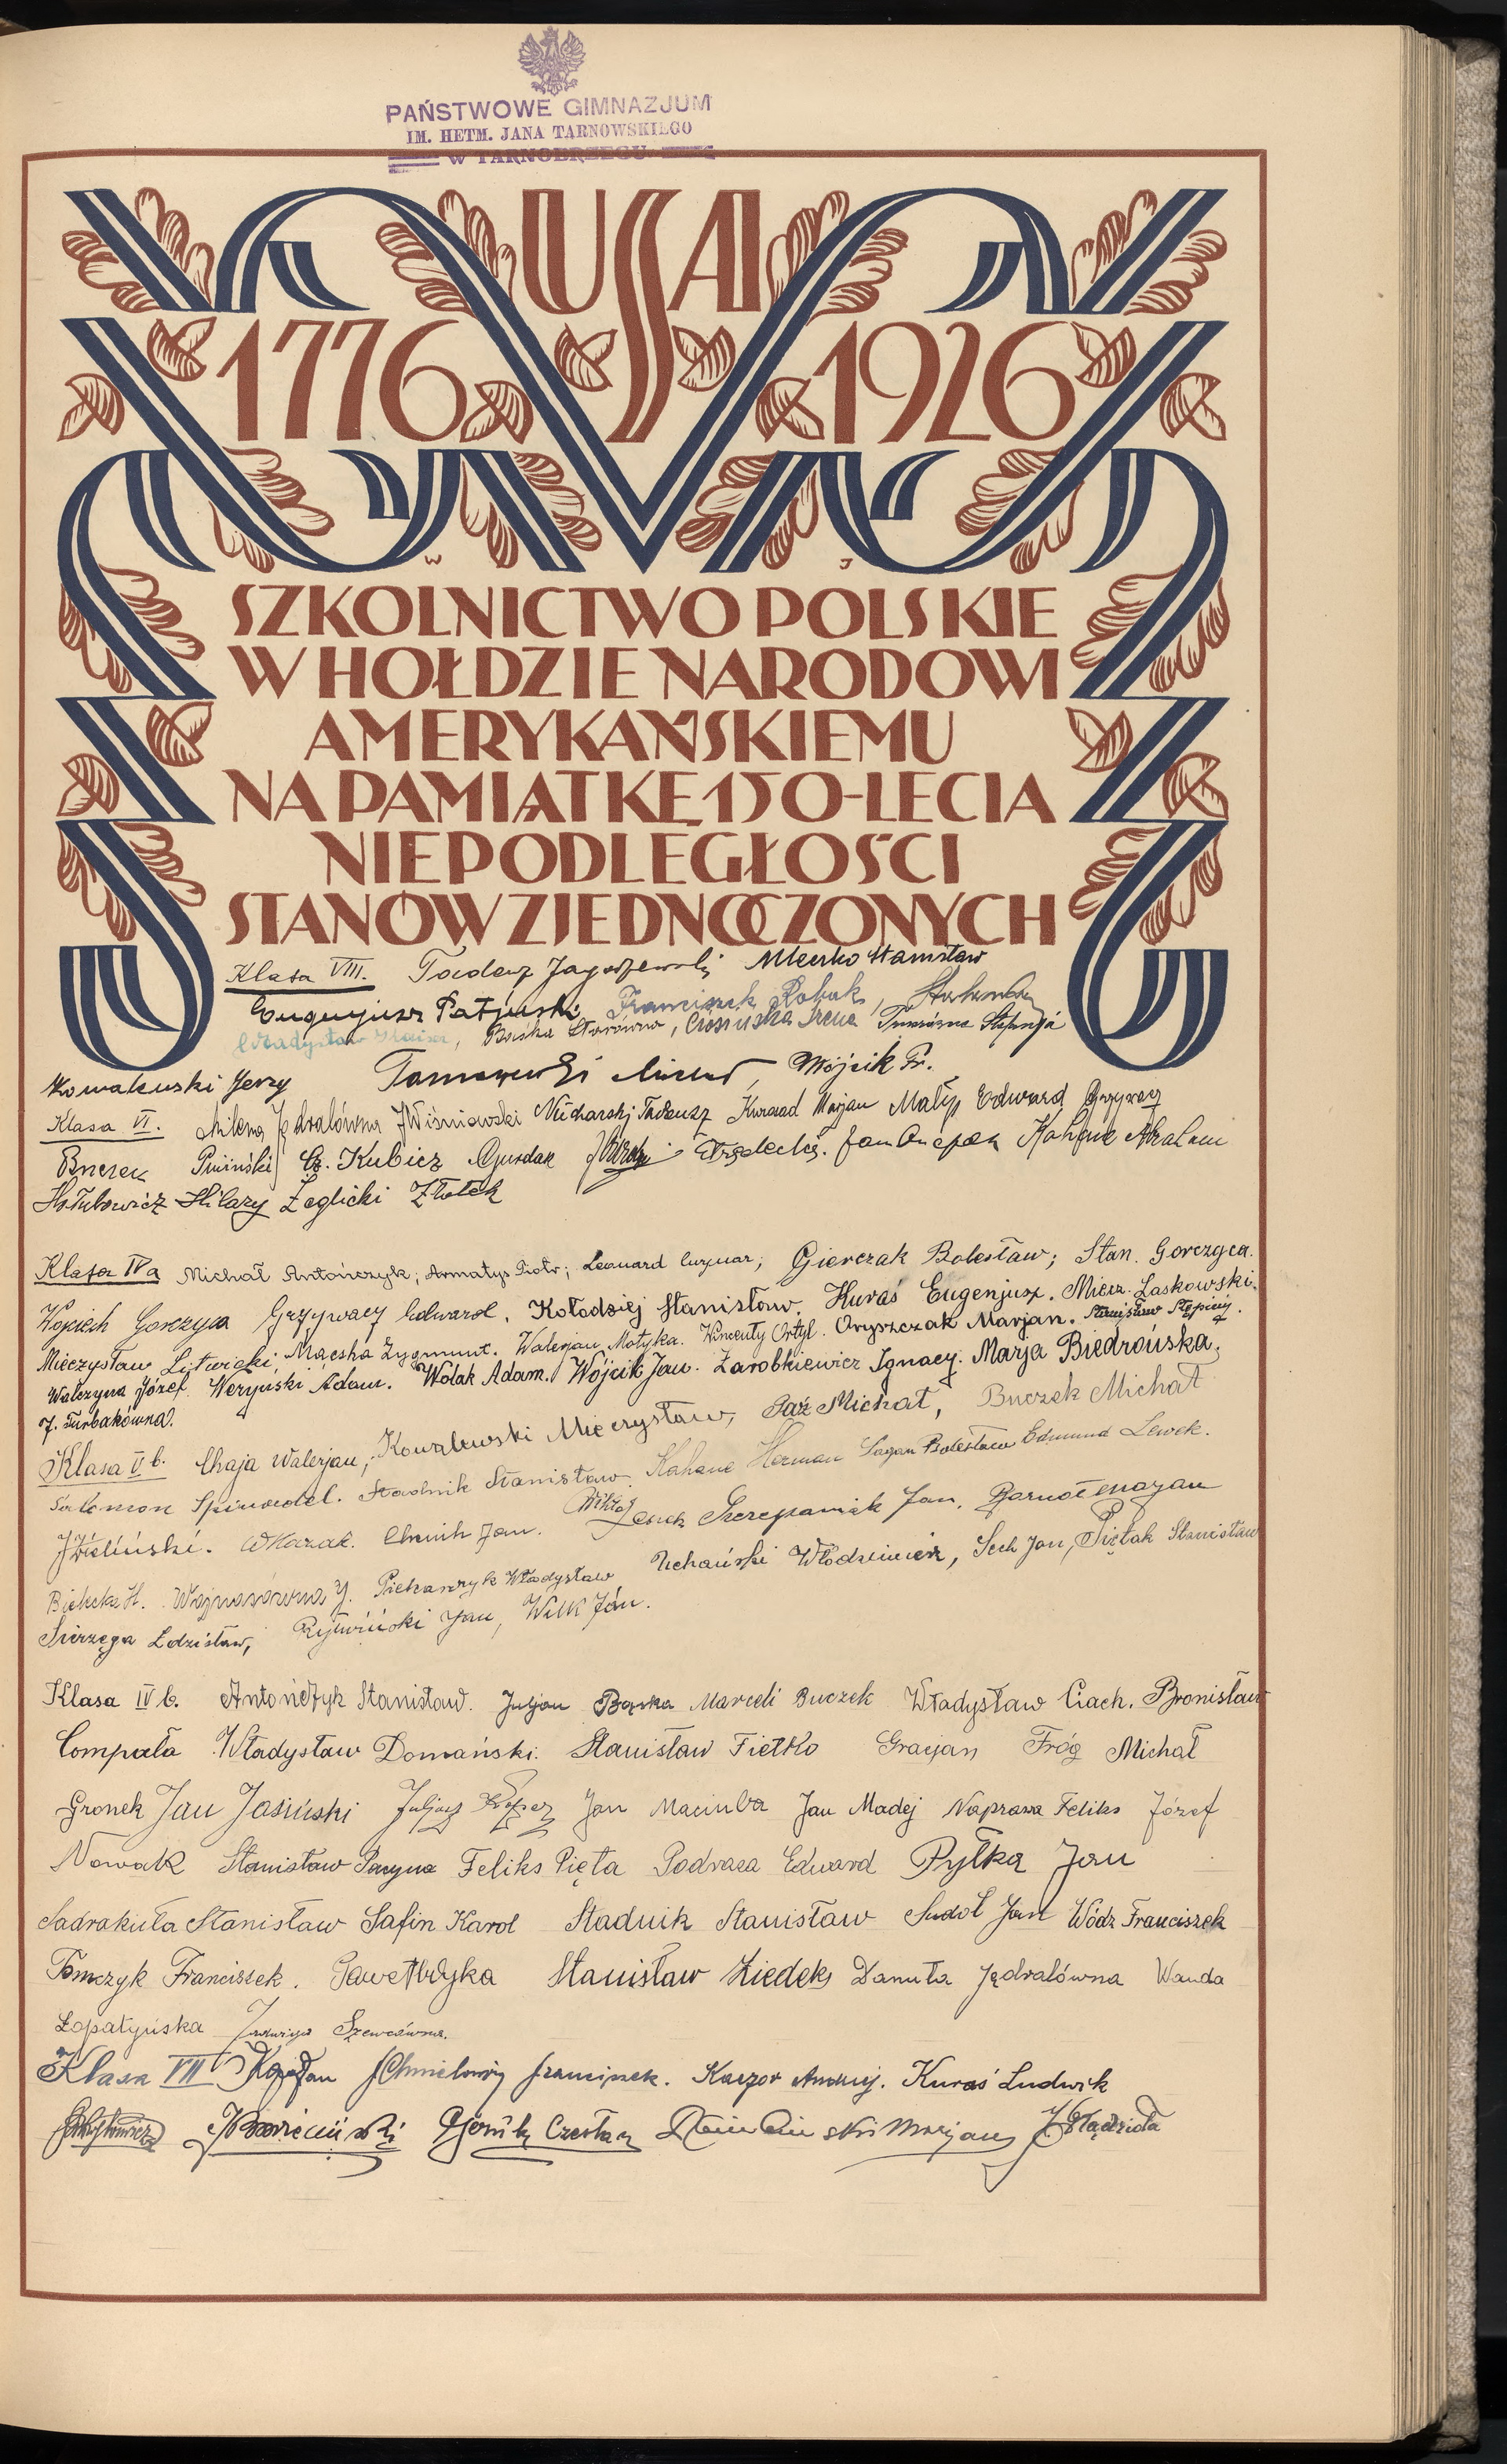 PAŃSTWOWE GIMNAZJUM
IM. HETM. JANA TARNOWSKIEGO
W TARNOBRZEGU
USA
1776 1926
W J
SZKOLNICTWO POLSKIE
W HOŁDZIE NARODOWI
AMERYKAŃSKIEMU
NA PAMIĄTKĘ 150-LECIA
NIEPODLEGŁOŚCI
STANÓW ZJEDNOCZONYCH
Klasa VIII. Tadeusz Mleczko Stanisław
Eugenjusz Franciszek Robak,
Władysław Irena
Kowalewski Jerzy Wójcik Fr.
Klasa VI. Milena Jędralówna JWiśniowski Tadeusz Konrad Marjan Małip Edward Grzywacz
Cz. Kubicz Kahane Abraham
Hołubowicz Hilary Żeglicki Złotek
Klasa IVa Michał Antończyk; Armatys Piotr; Leonard; Gierczak Bolesław; Stan. Gorczyca.
Wojciech Gorczyca Grzywacz Edward. Kołodziej Stanisław. Kuraś Eugenjusz. Miecz. Laskowski.
Mieczysław Litwicki; Mącsha Zygmunt. Walerjan Motyka. Wincenty Ortyl. Oryszczak Marjan. Stanisław Stępień.
Walczyna Józef. Weryński Adam. Wolak Adam. Wójcik Jan. Zarobkiewicz Ignacy. Marja Biedrońska.
J. Turbakówna.
Klasa V b. Chaja Walerjan, Kowalewski Mieczysław, Paź Michał, Buczek Michał
Salomon Spinadel. Stadnik Stanisław. Kahane Herman Sagan Bolesław Edmund Lewek.
JZieliński. WKazak. Jan. Szczepaniak Jan.
H. Piekarczyk Władysław Uchański Włodzimierz, Sech Jan, Piętak Stanisław
Sierzęga Zdzisław, Rytwiński Jan, Wilk Jan.
Klasa IV b. Antończyk Stanisław. Juljan Bąska Marceli Buczek Władysław Ciach. Bronisław
Compała Władysław Domański. Stanisław Fietko Gracjan Fróg Michał
Gronek Jan Jasiński Juljusz Jan Maciuba Jan Madej Naprawa Feliks Józef
Nowak Stanisław Paryna Feliks Pięta Podraza Edward Pyłka Jan
Sadrakuła Stanisław Safin Karol Stadnik Stanisław Sudoł Jan Wódz Franciszek
Tomczyk Franciszek. Stanisław Ziedek Danuta Jędralówna Wanda
Łopatyńska Jadwiga Szewcówna.
Klasa VII Franciszek. Kaczor Andrzej. Kuraś Ludwik
Czesław Marjan